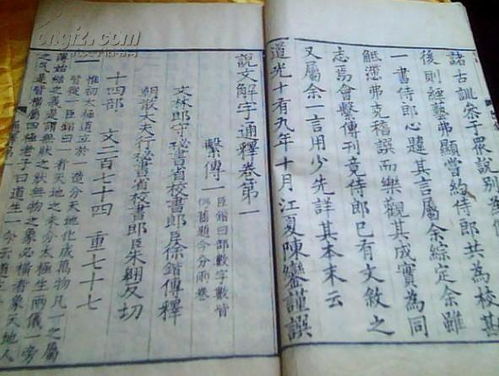 詁古訓察于眾說別為傳
後則經藝弗顯嘗約侍郎共為校勘
一書侍郎心題其言屬余綜定余雖
觝滯弗克稽譔而樂觀其成實為同
志焉會繫傳刊竟侍郎已有文敘之
又屬余一言用少先詳其本末云
道光十有九年十月江夏陳鑾謹譔
說文解字通釋卷第一
繫傳一
臣鍇曰部數字數皆
仍舊題今分兩卷
文林郎守祕書省校書郎臣徐鍇傳釋
朝散大夫行祕書省校書郎臣朱翱反切
十四部 文二百七十四 重七十七
惟初太極道立於一造分天地化成萬物凡一之屬
皆從一臣鍇曰
cngiz.com